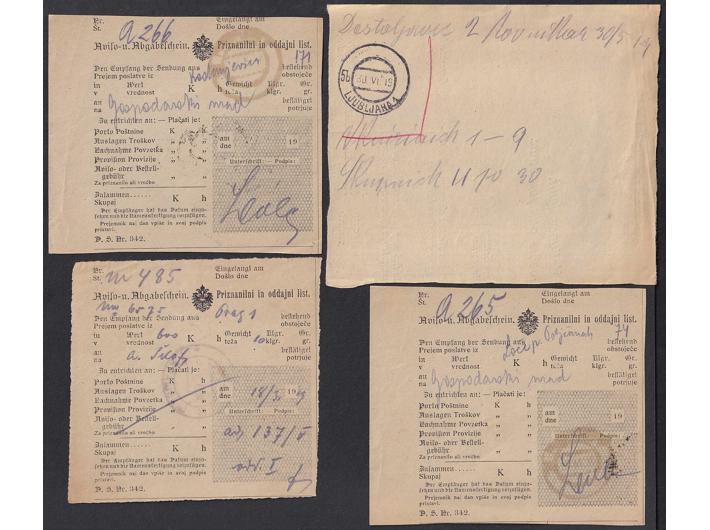 Nr.
St. a 266
Eingelangt am
Došlo dne
Aviso-u. Abgabeschein. Priznanilni in oddajni list.
Den Empfang der Sendung aus 171 bestehend
Prejem poslatve iz obstoječe
in Wert K h Gewicht Klgr. Gr.
v vrednost teža klgr. gr.
an bestätiget
na Gospodarski urad potrjuje
Zu entrichten an: — Plačati je:
Porto Poštnine K h
Auslagen Troškov " "
Nachnahme Povzetka " "
Provision Provizije " "
Aviso- oder Bestell-
gebühr " "
Za priznanilo ali vročbo
am
dne 19
Unterschrift: - Podpis:
Zusammen......
Skupaj K h
Der Empfänger hat das Datum einzu-
setzen und die Namensfertigung beizufügen.
Prejemnik naj dan vpiše in svoj podpis
pristavi.
D. S. Nr. 342.
2 30/5 19
5b 30 VI 19
LJUBLJANA 1
1 - 9
30
Nr.
St. 485
Eingelangt am
Došlo dne
Aviso-u. Abgabeschein. Priznanilni in oddajni list.
6575 Prag 1
Den Empfang der Sendung aus bestehend
Prejem poslatve iz obstoječe
in Wert 600 K h Gewicht Klgr. Gr.
v vrednost teža 10 klgr. gr.
an bestätiget
na potrjuje
Zu entrichten an: — Plačati je:
Porto Poštnine K h
Auslagen Troškov " "
Nachnahme Povzetka " "
Provision Provizije " "
Aviso- oder Bestell-
gebühr " "
Za priznanilo ali vročbo
am
dne 19
Unterschrift: - Podpis:
137/V
Zusammen......
Skupaj K h
Der Empfänger hat das Datum einzu-
setzen und die Namensfertigung beizufügen.
Prejemnik naj dan vpiše in svoj podpis
pristavi.
D. S. Nr. 342.
Nr.
St. a 265
Eingelangt am
Došlo dne
Aviso-u. Abgabeschein. Priznanilni in oddajni list.
Den Empfang der Sendung aus 74 bestehend
Prejem poslatve iz obstoječe
in Wert K h Gewicht Klgr. Gr.
v vrednost teža klgr. gr.
an bestätiget
na Gospodarski urad potrjuje
Zu entrichten an: — Plačati je:
Porto Poštnine K h
Auslagen Troškov " "
Nachnahme Povzetka " "
Provision Provizije " "
Aviso- oder Bestell-
gebühr " "
Za priznanilo ali vročbo
am
dne 19
Unterschrift: - Podpis:
Zusammen......
Skupaj K h
Der Empfänger hat das Datum einzu-
setzen und die Namensfertigung beizufügen.
Prejemnik naj dan vpiše in svoj podpis
pristavi.
D. S. Nr. 342.